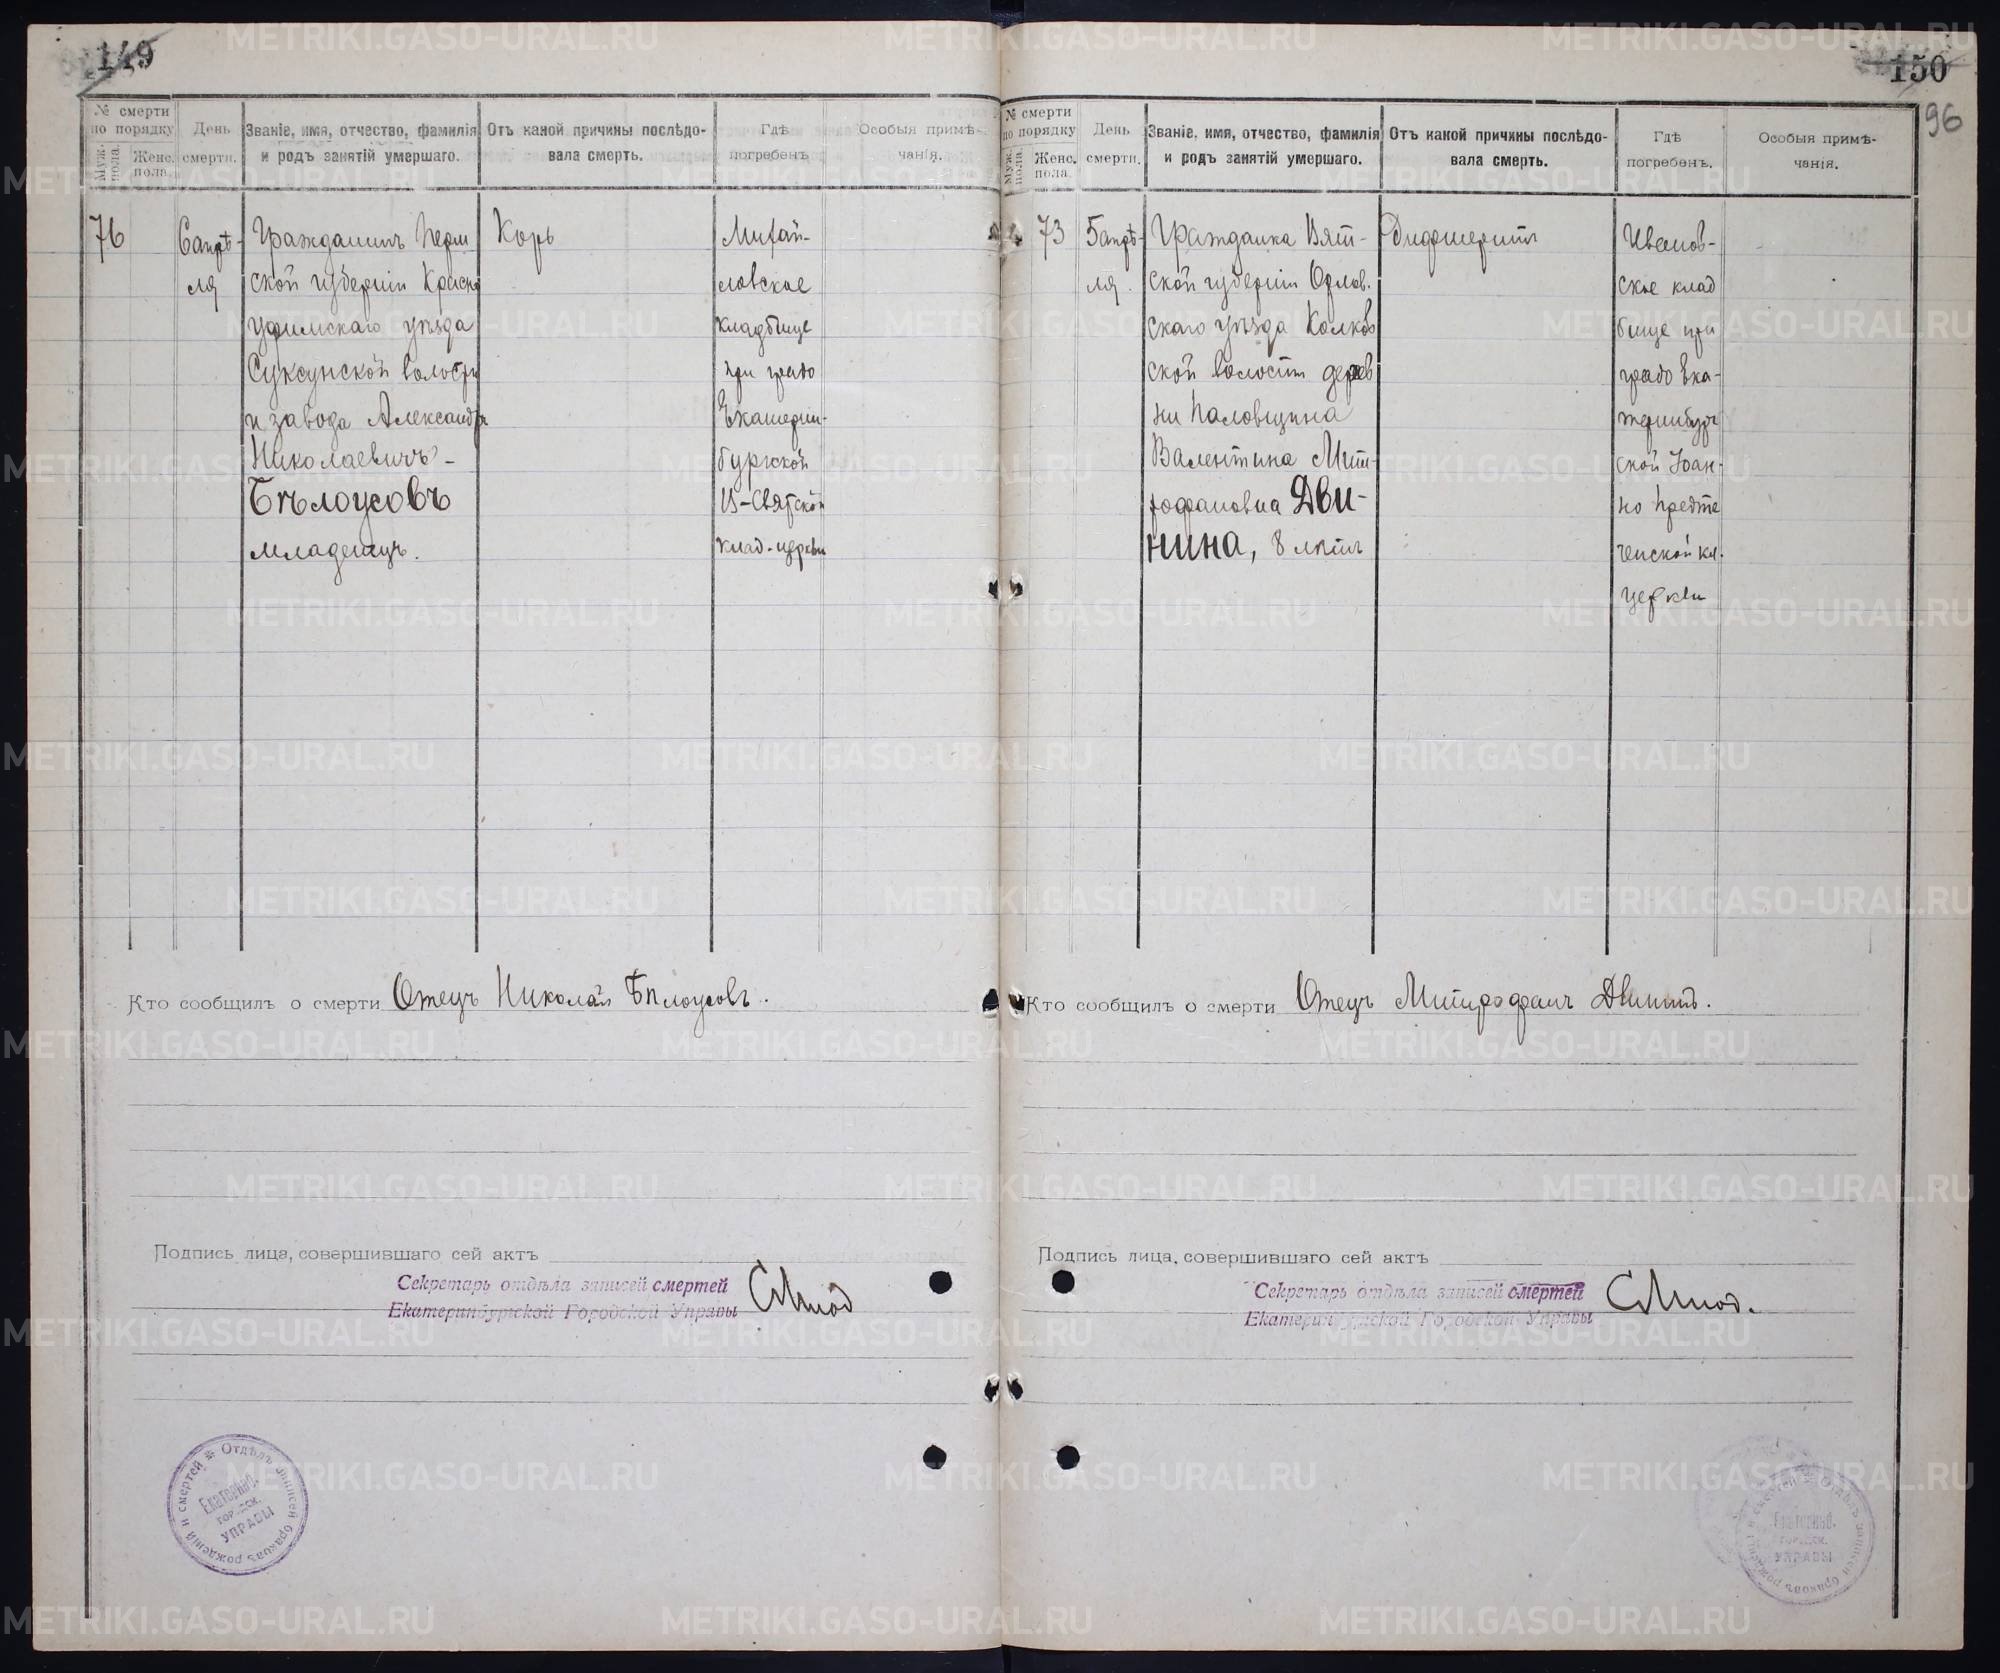 149
№ смерти по порядку
Муж. пола.
Женс. пола.
День смерти.
Званіе, имя, отчество, фамилія и родъ занятій умершаго.
Отъ какой причины послѣдовала смерть.
Гдѣ погребенъ.
Особыя примѣчанія.
76
6 апрѣ-
ля
Гражданинъ Перм
ской губерніи Красно
уфимскаго уѣзда
Суксунской волости
и завода Александръ
Николаевичъ -
Бѣлоусовъ
младенецъ.
Корь
Михай-
ловское
кладбище
при градо
Екатерин-
бургской
В-Святской
клад. церкви
Кто сообщилъ о смерти Отецъ Николай Бѣлоусовъ.
Подпись лица, совершившаго сей актъ
Секретарь отдѣла записей смертей
Екатеринбургской Городской Управы
Отдѣлъ записей браковъ рожденій и смертей
Екатеринб.
городск.
УПРАВЫ
150
96
№ смерти по порядку
Муж. пола.
Женс. пола.
День смерти.
Званіе, имя, отчество, фамилія и родъ занятій умершаго.
Отъ какой причины послѣдовала смерть.
Гдѣ погребенъ.
Особыя примѣчанія.
73
5 апрѣ-
ля.
Гражданка Вят-
ской губерніи Орлов.
скаго уѣзда Колков
ской волости дерев
ни Паловщина
Валентина Мит-
рофановна Дви-
нина, 8 лѣтъ
Дифтеритъ
Иванов-
ское клад
бище при
градо Ека-
теринбург
ской Іоан-
но Предте
ченской кл.
церкви
Кто сообщилъ о смерти Отецъ Митрофанъ Двининъ.
Подпись лица, совершившаго сей актъ
Секретарь отдѣла записей смертей
Екатеринбургской Городской Управы
Отдѣлъ записей браковъ рожденій и смертей
Екатеринб.
городск.
УПРАВЫ
METRIKI.GASO-URAL.RU